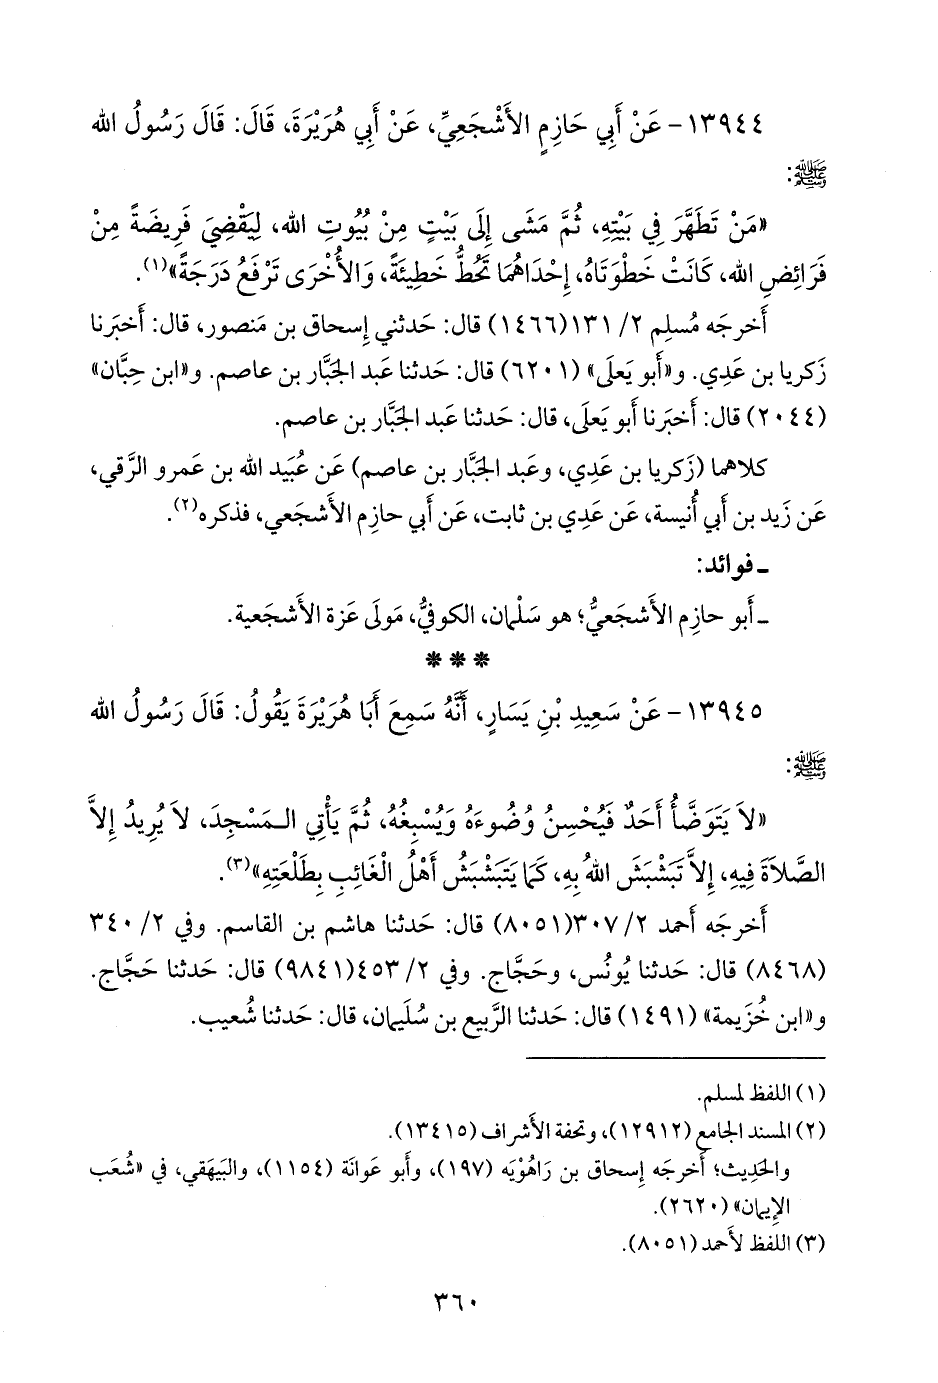 ١٣٩٤٤ - عَنْ أَبِي حَازِمٍ الأَشْجَعِيِّ، عَنْ أَبِي هُرَيْرَةَ، قَالَ: قَالَ رَسُولُ الله
ﷺ:
«مَنْ تَطَهَّرَ فِي بَيْتِهِ، ثُمَّ مَشَى إِلَى بَيْتٍ مِنْ بُيُوتِ الله، لِيَقْضِيَ فَرِيضَةً مِنْ
فَرَائِضِ الله، كَانَتْ خَطْوَتَاهُ، إِحْدَاهُمَا تَحُطُّ خَطِيئَةً، وَالأُخْرَى تَرْفَعُ دَرَجَةً»(١).
أَخرجَه مُسلِم ٢/ ١٣١(١٤٦٦) قال: حَدثني إِسحاق بن مَنصور، قال: أَخبَرنا
زَكريا بن عَدِي. و«أَبو يَعلَى» (٦٢٠١) قال: حَدثنا عَبد الجَبَّار بن عاصم. و«ابن حِبَّان»
(٢٠٤٤) قال: أَخبَرنا أَبو يَعلَى، قال: حَدثنا عَبد الجَبَّار بن عاصم.
كلاهما (زَكريا بن عَدِي، وعَبد الجَبَّار بن عاصم) عَن عُبَيد الله بن عَمرو الرَّقي،
عَن زَيد بن أَبي أُنيسة، عَن عَدِي بن ثابت، عَن أَبي حازِم الأَشجَعي، فذكره(٢).
ـ فوائد:
ـ أَبو حازِم الأَشجَعيُّ؛ هو سَلْمان، الكوفيُّ، مَولَى عَزة الأَشجَعية.
***
١٣٩٤٥ - عَنْ سَعِيدِ بْنِ يَسَارٍ، أَنَّهُ سَمِعَ أَبَا هُرَيْرَةَ يَقُولُ: قَالَ رَسُولُ الله
ﷺ:
«لاَ يَتَوَضَّأُ أَحَدٌ فَيُحْسِنُ وُضُوءَهُ وَيُسْبِغُهُ، ثُمَّ يَأْتِي الـمَسْجِدَ، لاَ يُرِيدُ إِلاَّ
الصَّلاَةَ فِيهِ، إِلاَّ تَبَشْبَشَ اللهُ بِهِ، كَمَا يَتَبَشْبَشُ أَهْلُ الْغَائِبِ بِطَلْعَتِهِ»(٣).
أَخرجَه أَحمد ٢/ ٣٠٧(٨٠٥١) قال: حَدثنا هاشم بن القاسم. وفي ٢/ ٣٤٠
(٨٤٦٨) قال: حَدثنا يُونُس، وحَجَّاج. وفي ٢/ ٤٥٣(٩٨٤١) قال: حَدثنا حَجَّاج.
و«ابن خُزَيمة» (١٤٩١) قال: حَدثنا الرَّبيع بن سُلَيمان، قال: حَدثنا شُعيب.
(١) اللفظ لمسلم.
(٢) المسند الجامع (١٢٩١٢)، وتحفة الأَشراف (١٣٤١٥).
والحَدِيث؛ أَخرجَه إِسحاق بن رَاهُوْيَه (١٩٧)، وأَبو عَوانَة (١١٥٤)، والبَيهَقي، في «شُعَب
الإِيمان» (٢٦٢٠).
(٣) اللفظ لأَحمد (٨٠٥١).
٣٦٠